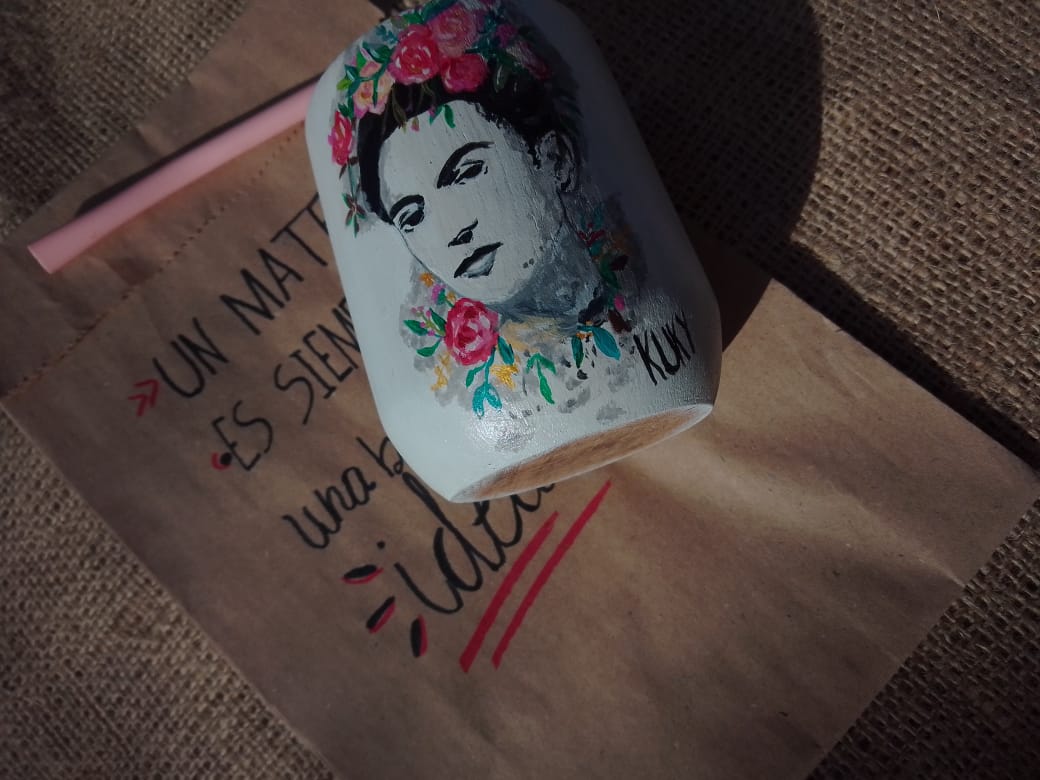 UN MATE
ES SIEM
una b
idea
KUKY